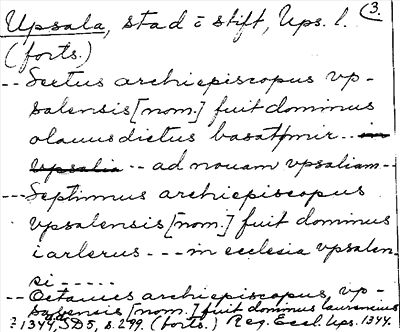 Upsala, stad i stift, Ups. l. (3.
(forts.)
-- Sextus archiepiscopus vp-
salensis [nom.] fuit dominus
olauus dictus basatømir -- in
vpsalia -- ad nouam vpsaliam --
--- Septimus archiepiscopus
vpsalensis [nom.] fuit dominus
iarlerus --- in ecclesia vpsalen
si -----
-- Octauus archiepiscopus vp-
salensis [nom.] fuit dominus laurencius
? 1344, SD 5, s. 299. (forts.) Reg. Eccl. Ups. 1344.